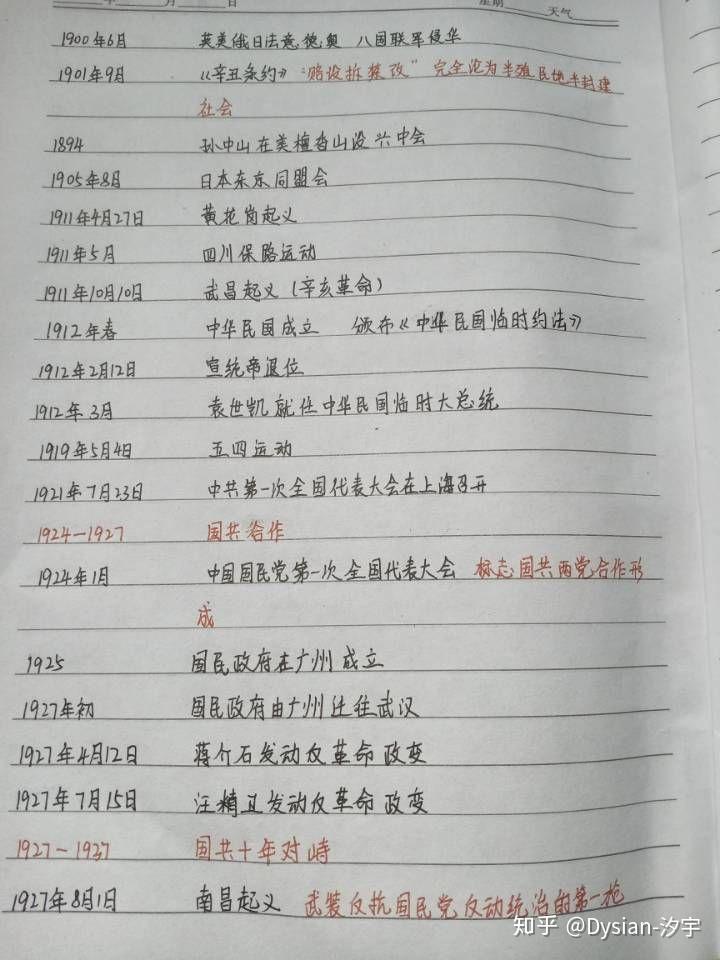 年 月 日 星期 天气
1900年6月 英美俄日法意德奥 八国联军侵华
1901年9月 《辛丑条约》"赔设拆禁改" 完全沦为半殖民地半封建
社会
1894 孙中山在美檀香山设兴中会
1905年8月 日本东京同盟会
1911年4月27日 黄花岗起义
1911年5月 四川保路运动
1911年10月10日 武昌起义（辛亥革命）
1912年春 中华民国成立 颁布《中华民国临时约法》
1912年2月12日 宣统帝退位
1912年3月 袁世凯就任中华民国临时大总统
1919年5月4日 五四运动
1921年7月23日 中共第一次全国代表大会在上海召开
1924—1927 国共合作
1924年1月 中国国民党第一次全国代表大会 标志国共两党合作形
成
1925 国民政府在广州成立
1927年初 国民政府由广州迁往武汉
1927年4月12日 蒋介石发动反革命政变
1927年7月15日 汪精卫发动反革命政变
1927－1937 国共十年对峙
1927年8月1日 南昌起义 武装反抗国民党反动统治的第一枪
知乎 @Dysian-汐宇